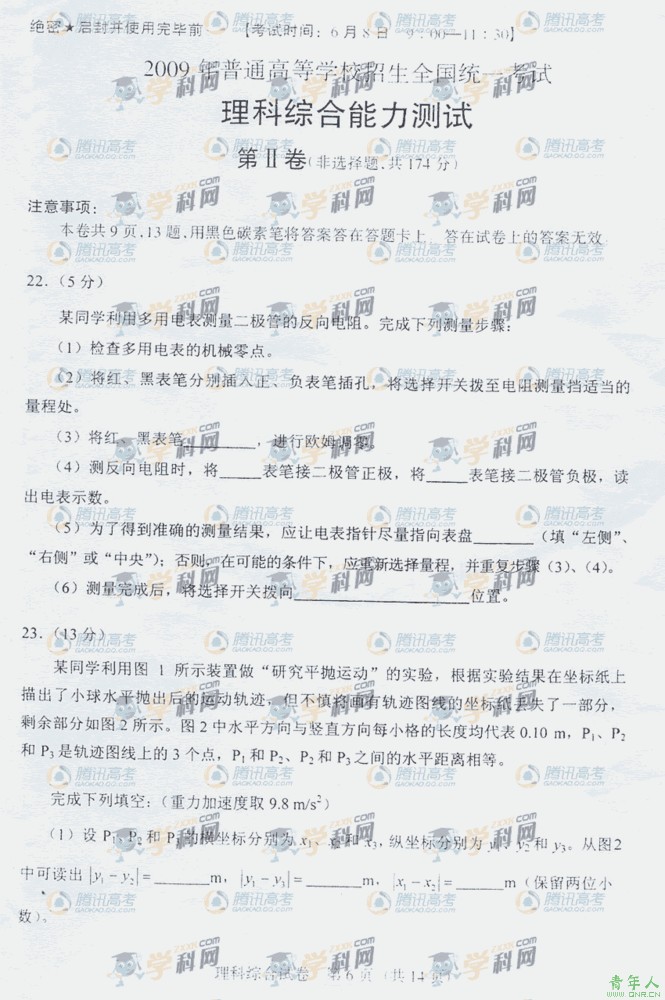 绝密★启封并使用完毕前 【考试时间：6月8日 9：00—11：30】
2009年普通高等学校招生全国统一考试
理科综合能力测试
第Ⅱ卷(非选择题,共174分)
注意事项：
本卷共9页,13题,用黑色碳素笔将答案答在答题卡上 答在试卷上的答案无效
22.（5分）
某同学利用多用电表测量二极管的反向电阻。完成下列测量步骤：
（1）检查多用电表的机械零点。
（2）将红、黑表笔分别插入正、负表笔插孔，将选择开关拨至电阻测量挡适当的
量程处。
（3）将红、黑表笔________，进行欧姆调零
（4）测反向电阻时，将_____表笔接二极管正极，将_____表笔接二极管负极，读
出电表示数。
（5）为了得到准确的测量结果，应让电表指针尽量指向表盘_______（填“左侧”、
“右侧”或“中央”）；否则，在可能的条件下，应重新选择量程，并重复步骤（3）、（4）。
（6）测量完成后，将选择开关拨向__________________位置。
23.（13分）
某同学利用图 1 所示装置做“研究平抛运动”的实验，根据实验结果在坐标纸上
描出了小球水平抛出后的运动轨迹，但不慎将画有轨迹图线的坐标纸丢失了一部分，
剩余部分如图 2 所示。图 2 中水平方向与竖直方向每小格的长度均代表 0.10 m，P₁、P₂
和 P₃ 是轨迹图线上的 3 个点，P₁ 和 P₂、P₂ 和 P₃ 之间的水平距离相等。
完成下列填空：（重力加速度取 9.8 m/s²）
（1）设 P₁、P₂ 和 P₃ 的横坐标分别为 x₁、x₂ 和 x₃，纵坐标分别为 y₁、y₂ 和 y₃。从图2
中可读出 |y₁－y₂|＝______m，|y₁－y₃|＝______m，|x₁－x₂|＝______m（保留两位小
数）。
理科综合试卷 第6页（共14页）
学科网
ZXXK.COM
腾讯高考
GAOKAO.QQ.COM
青年人
WWW.QNR.CN